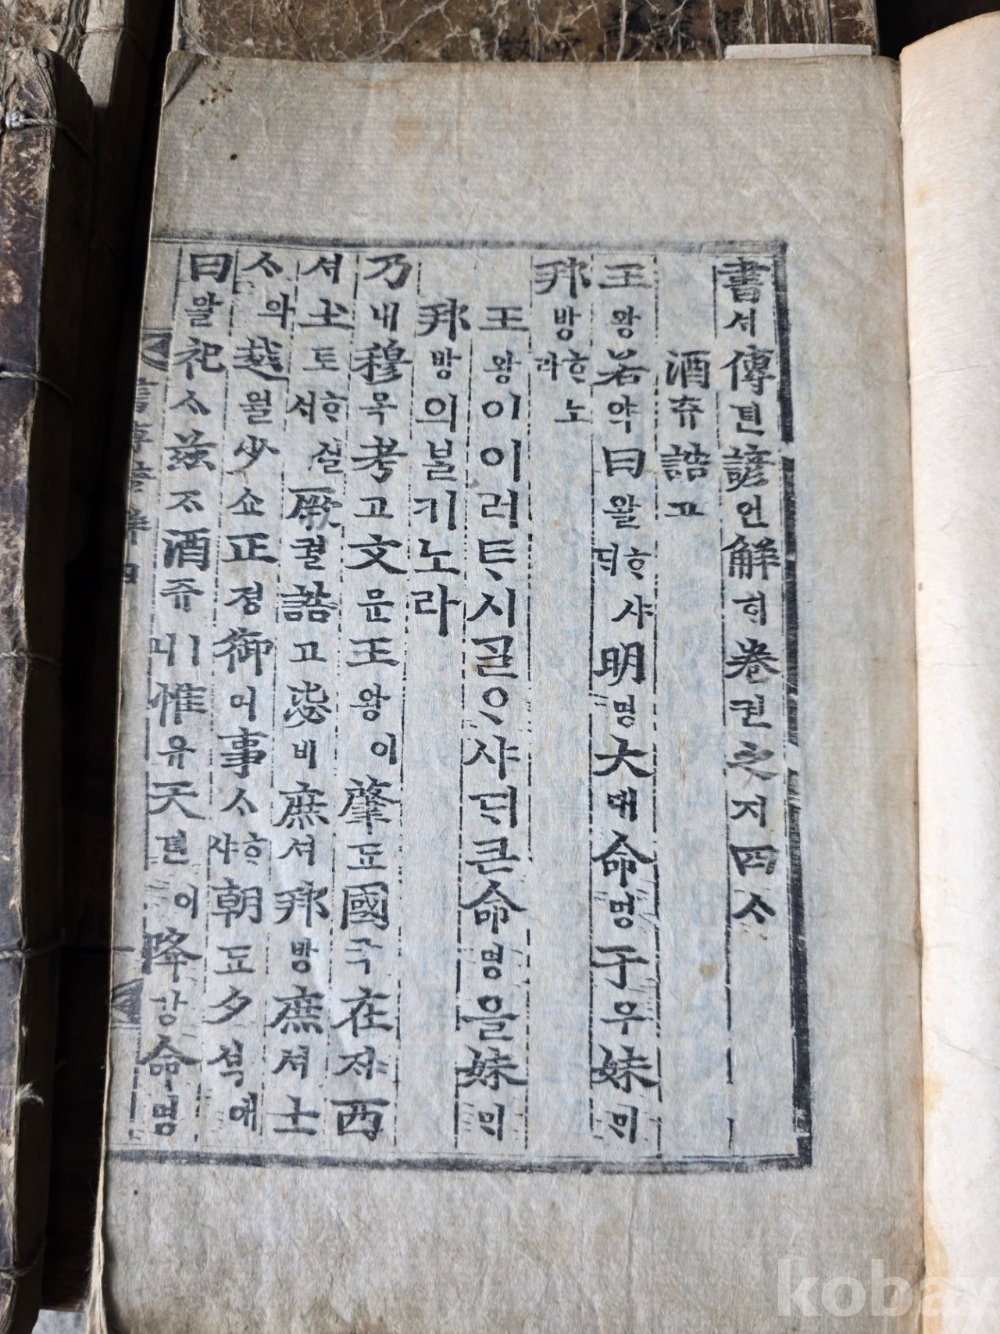 書셔傳뎐諺언解ᄒᆡ卷권之지四ᄉᆞ
酒쥬誥고
王왕若약曰왈ᄒᆞ샤ᄃᆡ明명大대命명于우妹ᄆᆡ
邦방ᄒᆞ노라
王왕이이러ᄐᆞ시ᄀᆞᆯᄋᆞ샤ᄃᆡ큰命명을妹ᄆᆡ
邦방의ᄇᆞᆯ기노라
乃내穆목考고文문王왕이肇됴國국在ᄌᆡ西
셔土토ᄒᆞ실ᄉᆡ厥궐誥고毖비庶셔邦방庶셔士
ᄉᆞ와越월少쇼正졍御어事ᄉᆞᄒᆞ샤朝됴夕셕애
曰왈祀ᄉᆞ玆ᄌᆞ酒쥬ㅣ니惟유天텬이降강命명
書傳諺解 四
kobay